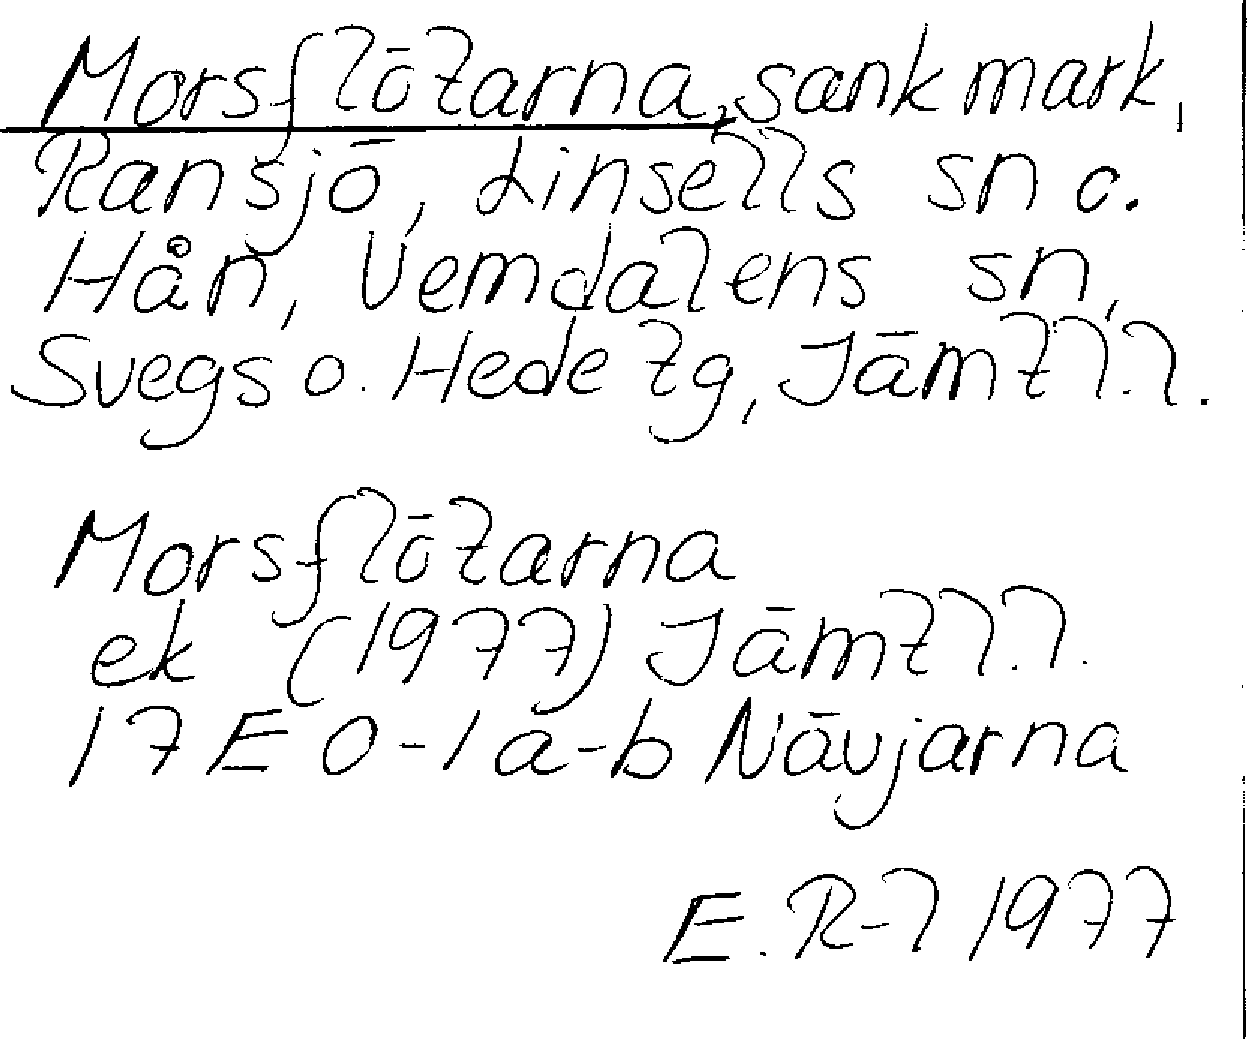 Morsflötarna, sankmark,
Ransjö, Linsells sn o.
Hån, Vemdalens sn,
Svegs o. Hede tg, Jämtl.l.
Morsflötarna
ek (1977) Jämtl.l.
17 E 0-1 a-b Nävjarna
E. R-l 1977